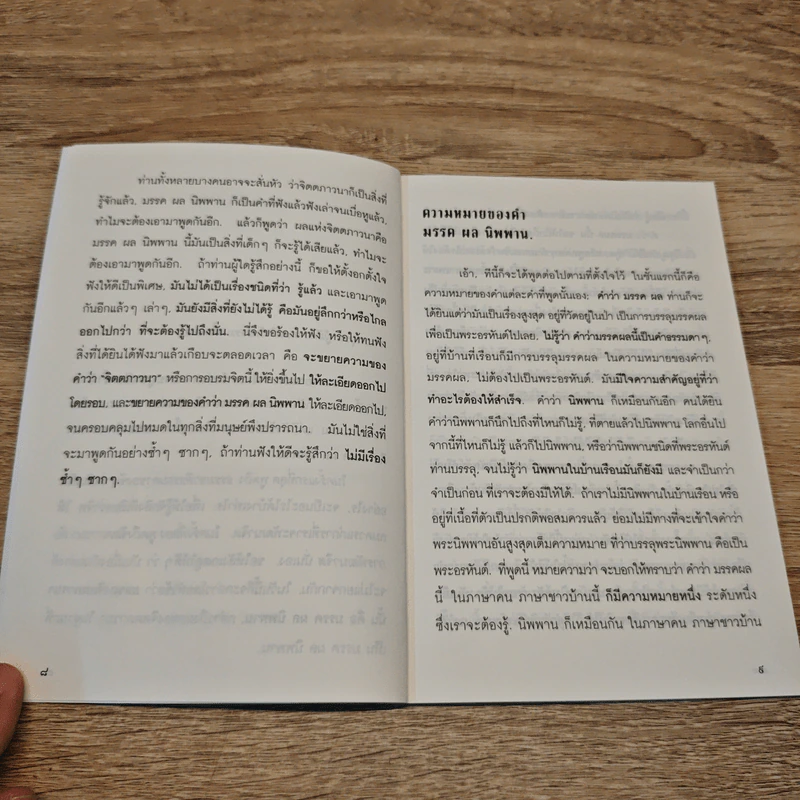 ท่านทั้งหลายบางคนอาจจะสั่นหัว ว่าจิตตภาวนาก็เป็นสิ่งที่
รู้จักแล้ว, มรรค ผล นิพพาน ก็เป็นคำที่ฟังแล้วฟังเล่าจนเบื่อหูแล้ว,
ทำไมจะต้องเอามาพูดกันอีก. แล้วก็พูดว่า ผลแห่งจิตตภาวนาคือ
มรรค ผล นิพพาน นี้มันเป็นสิ่งที่เด็กๆ ก็จะรู้ได้เสียแล้ว, ทำไมจะ
ต้องเอามาพูดกันอีก. ถ้าท่านผู้ใดรู้สึกอย่างนี้ ก็ขอให้ตั้งอกตั้งใจ
ฟังให้ดีเป็นพิเศษ. มันไม่ได้เป็นเรื่องชนิดที่ว่า รู้แล้ว และเอามาพูด
กันอีกแล้วๆ เล่าๆ. มันยังมีสิ่งที่ยังไม่ได้รู้ คือมันอยู่ลึกกว่าหรือไกล
ออกไปกว่า ที่จะต้องรู้ไปถึงนั่น. นี่จึงขอร้องให้ฟัง หรือให้ทนฟัง
สิ่งที่ได้ยินได้ฟังมาแล้วเกือบจะตลอดเวลา คือ จะขยายความของ
คำว่า "จิตตภาวนา" หรือการอบรมจิตนี้ ให้ยิ่งขึ้นไป ให้ละเอียดออกไป
โดยรอบ, และขยายความของคำว่า มรรค ผล นิพพาน ให้ละเอียดออกไป,
จนครอบคลุมไปหมดในทุกสิ่งที่มนุษย์พึงปรารถนา. มันไม่ใช่สิ่งที่
จะมาพูดกันอย่างซ้ำๆ ซากๆ. ถ้าท่านฟังให้ดีจะรู้สึกว่า ไม่มีเรื่อง
ซ้ำๆ ซากๆ.
๘
ความหมายของคำ
มรรค ผล นิพพาน.
เอ้า, ทีนี้ก็จะได้พูดต่อไปตามที่ตั้งใจไว้ ในขั้นแรกนี้ก็คือ
ความหมายของคำแต่ละคำที่พูดนั้นเอง: คำว่า มรรค ผล ท่านก็จะ
ได้ยินแต่ว่ามันเป็นเรื่องสูงสุด อยู่ที่วัดอยู่ในป่า เป็นการบรรลุมรรคผล
เพื่อเป็นพระอรหันต์ไปเลย. ไม่รู้ว่า คำว่ามรรคผลนี้เป็นคำธรรมดาๆ,
อยู่ที่บ้านที่เรือนก็มีการบรรลุมรรคผล ในความหมายของคำว่า
มรรคผล, ไม่ต้องไปเป็นพระอรหันต์. มันมีใจความสำคัญอยู่ที่ว่า
ทำอะไรต้องให้สำเร็จ. คำว่า นิพพาน ก็เหมือนกันอีก คนได้ยิน
คำว่านิพพานก็นึกไปถึงที่ไหนก็ไม่รู้, ที่ตายแล้วไปนิพพาน โลกอื่นไป
จากนี้ที่ไหนก็ไม่รู้ แล้วก็ไปนิพพาน, หรือว่านิพพานชนิดที่พระอรหันต์
ท่านบรรลุ, จนไม่รู้ว่า นิพพานในบ้านเรือนมันก็ยังมี และจำเป็นกว่า
จำเป็นก่อน ที่เราจะต้องมีให้ได้. ถ้าเราไม่มีนิพพานในบ้านเรือน หรือ
อยู่ที่เนื้อที่ตัวเป็นปรกติพอสมควรแล้ว ย่อมไม่มีทางที่จะเข้าใจคำว่า
พระนิพพานอันสูงสุดเต็มความหมาย ที่ว่าบรรลุพระนิพพาน คือเป็น
พระอรหันต์. ที่พูดนี้ หมายความว่า จะบอกให้ทราบว่า คำว่า มรรคผล
นี้ ในภาษาคน ภาษาชาวบ้านนี้ ก็มีความหมายหนึ่ง ระดับหนึ่ง
ซึ่งเราจะต้องรู้. นิพพาน ก็เหมือนกัน ในภาษาคน ภาษาชาวบ้าน
๙